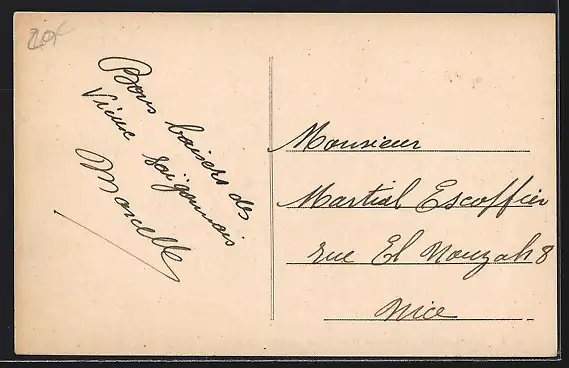 20€
Bons baisers des
Vieux Saïgonnais
Marcelle
Monsieur
Martial Escoffier
rue El Nouzah 8
Nice